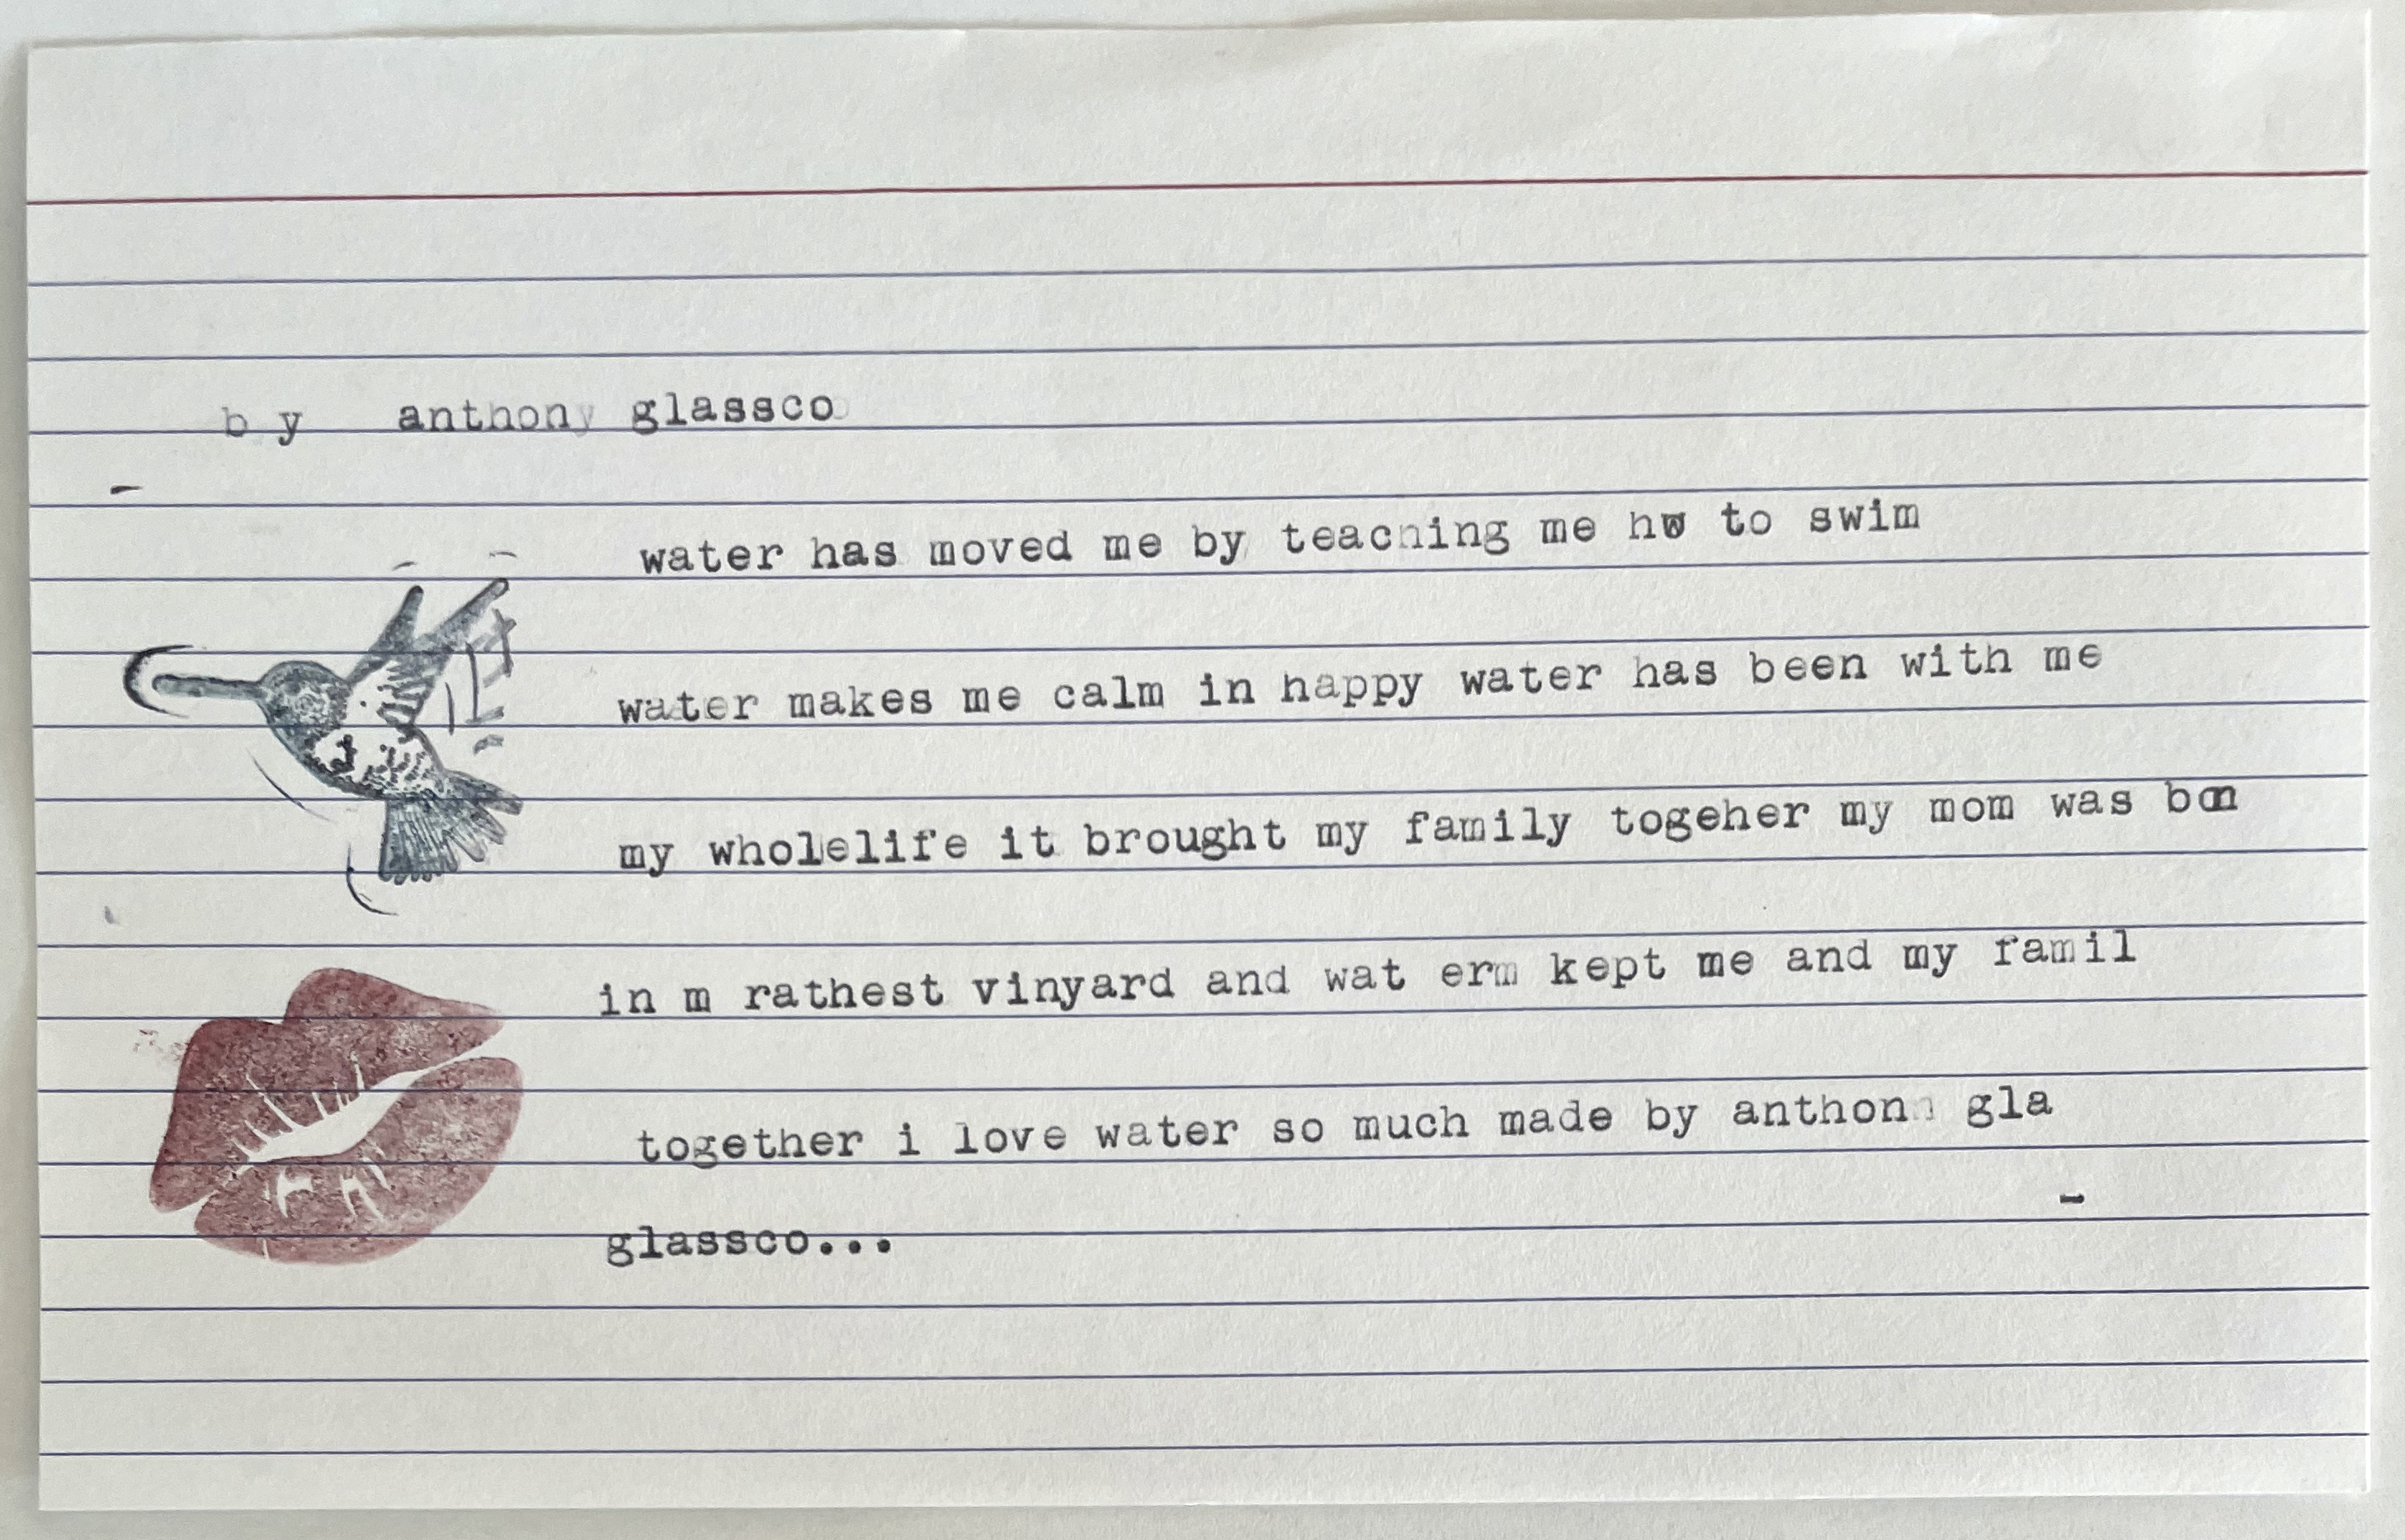 by anthony glassco
water has moved me by teaching me hw to swim
water makes me calm in happy water has been with me
my wholelife it brought my family togeher my mom was
in m rathest vinyard and wat erm kept me and my famil
together i love water so much made by anthonn gla
glassco...